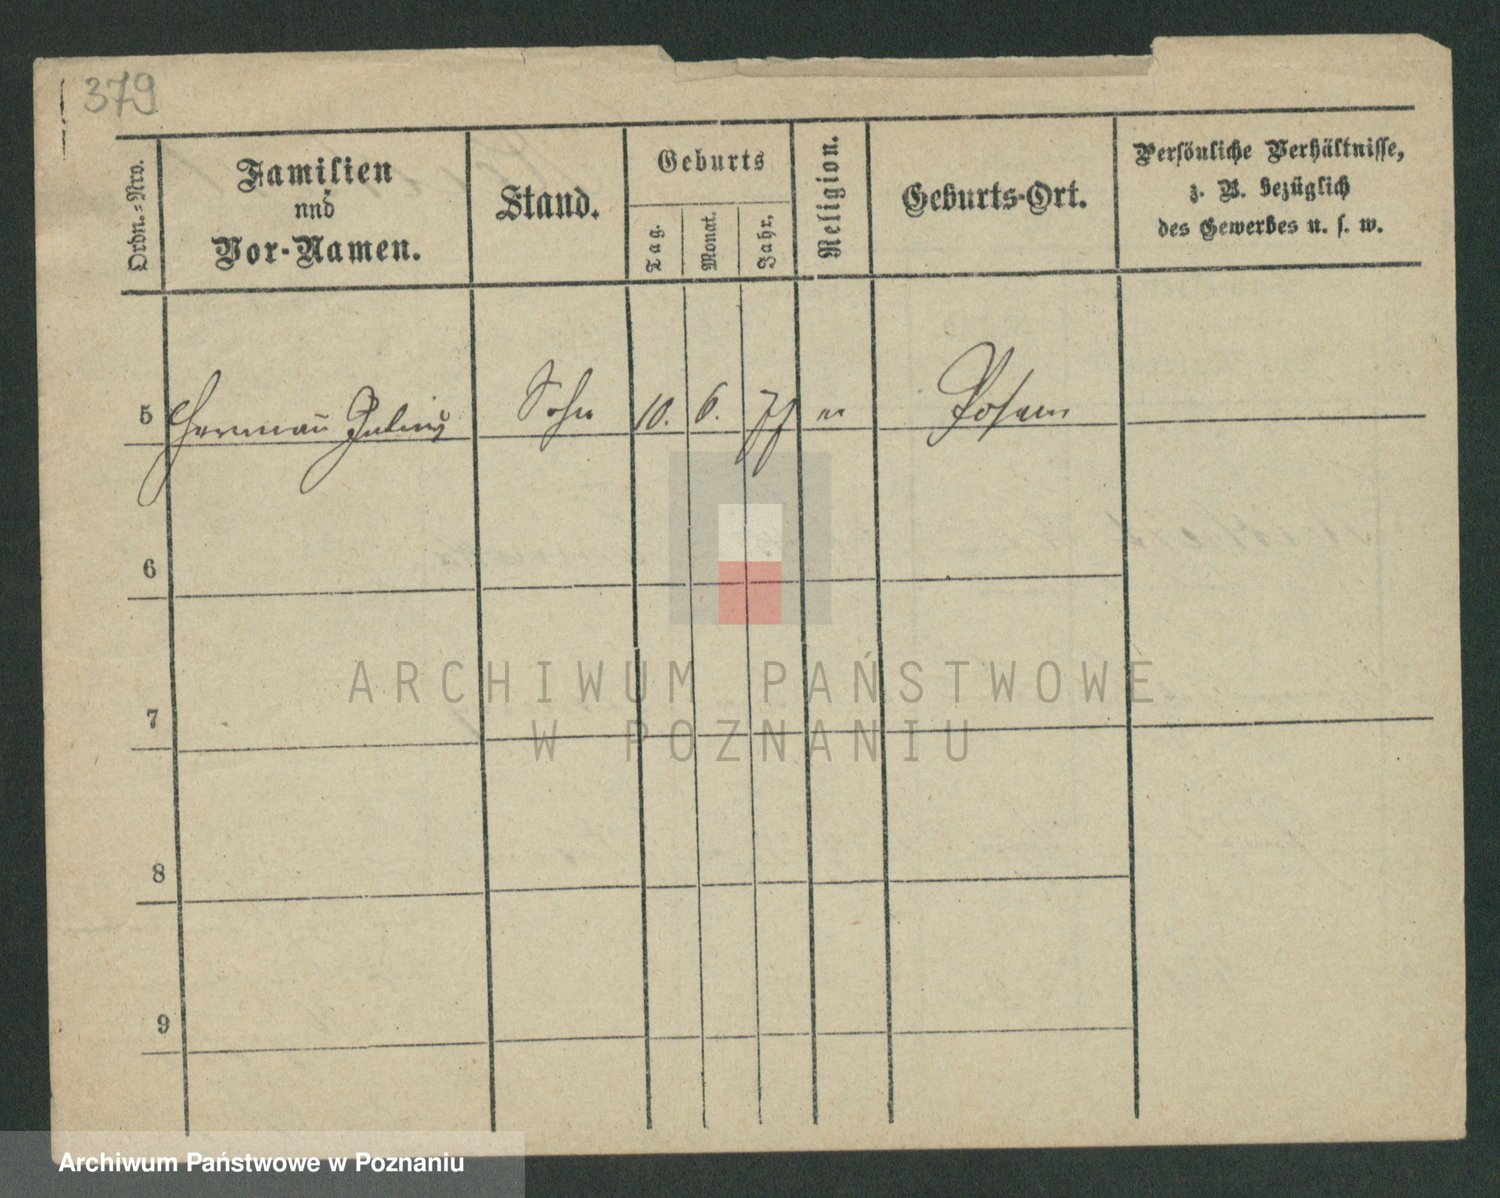 379
Ordn.-Nro.
Familien
und
Vor-Namen.
Stand.
Geburts
Tag.
Monat.
Jahr.
Religion.
Geburts-Ort.
Persönliche Verhältnisse,
z. B. bezüglich
des Gewerbes u. s. w.
5 Hermañ Julius Sohn 10. 6. 77 " Posen
6
7
8
9
ARCHIWUM PAŃSTWOWE
W POZNANIU
Archiwum Państwowe w Poznaniu